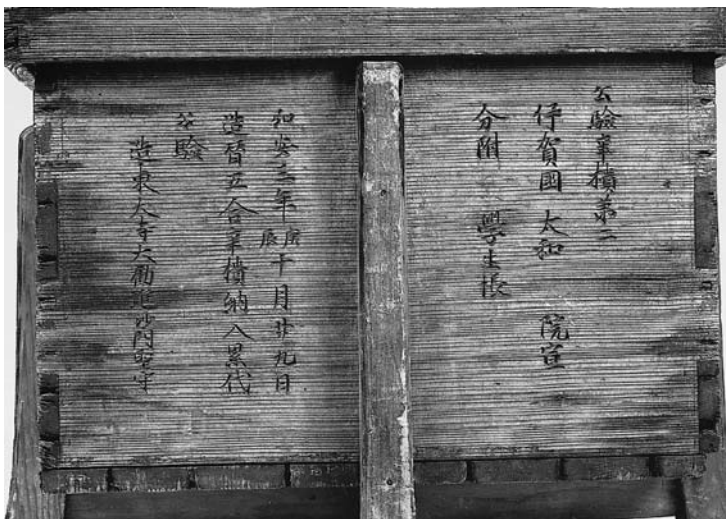 公驗辛櫃第二
伊賀國 大和 院宣
分附 學生帳
弘安三年庚辰十月廿九日
造替五合辛櫃納入累代
公驗
造東大寺大勸進沙門聖守